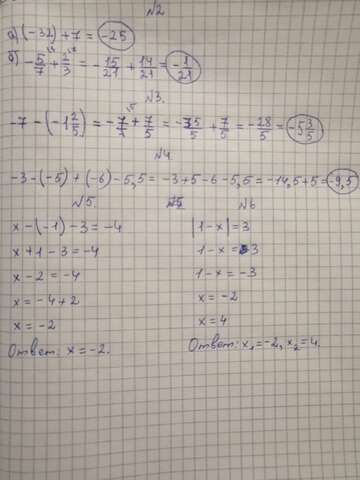 №2
а) (-32) + 7 = -25
б) -5/7 + 2/3 = -15/21 + 14/21 = -1/21
№3.
-7 - (-1 2/5) = -7/1 + 7/5 = -35/5 + 7/5 = -28/5 = -5 3/5
№4
-3 - (-5) + (-6) - 5,5 = -3 + 5 - 6 - 5,5 = -14,5 + 5 = -9,5
№5.
x - (-1) - 3 = -4
x + 1 - 3 = -4
x - 2 = -4
x = -4 + 2
x = -2
Ответ: x = -2.
№6
|1 - x| = 3
1 - x = 3
1 - x = -3
x = -2
x = 4
Ответ: x₁ = -2, x₂ = 4.